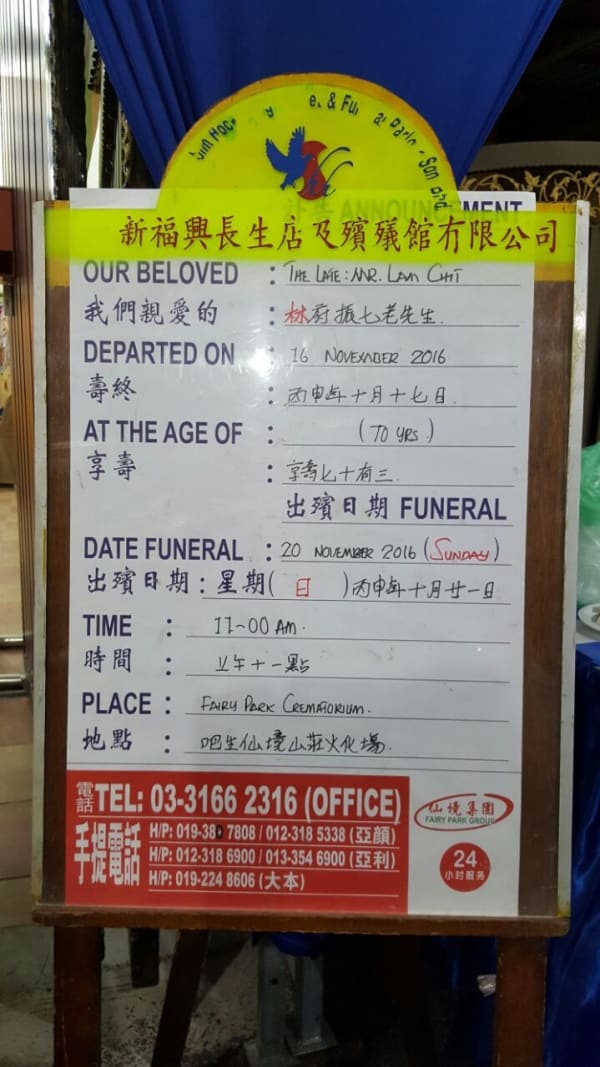 Sim Hoc
& Fu
Parlo
Sdn Bhd
ANNOUNCEMENT
新福興長生店及殯殮館有限公司
OUR BELOVED : THE LATE: MR. LAM CHIT
我們親愛的 : 林府振七老先生.
DEPARTED ON : 16 NOVEMBER 2016
壽終 : 丙申年十月十七日.
AT THE AGE OF : (70 YRS.)
享壽 : 享壽七十有三.
出殯日期 FUNERAL
DATE FUNERAL : 20 NOVEMBER 2016 (SUNDAY)
出殯日期 : 星期( 日 )丙申年十月廿一日
TIME : 11-00 AM.
時間 : 上午十一點
PLACE : FAIRY PARK CREMATORIUM.
地點 : 吧生仙境山莊火化場.
電話 TEL: 03-3166 2316 (OFFICE)
手提電話
H/P: 019-38 7808 / 012-318 5338 (亞顏)
H/P: 012-318 6900 / 013-354 6900 (亞利)
H/P: 019-224 8606 (大本)
仙境集團
FAIRY PARK GROUP
24
小时服务